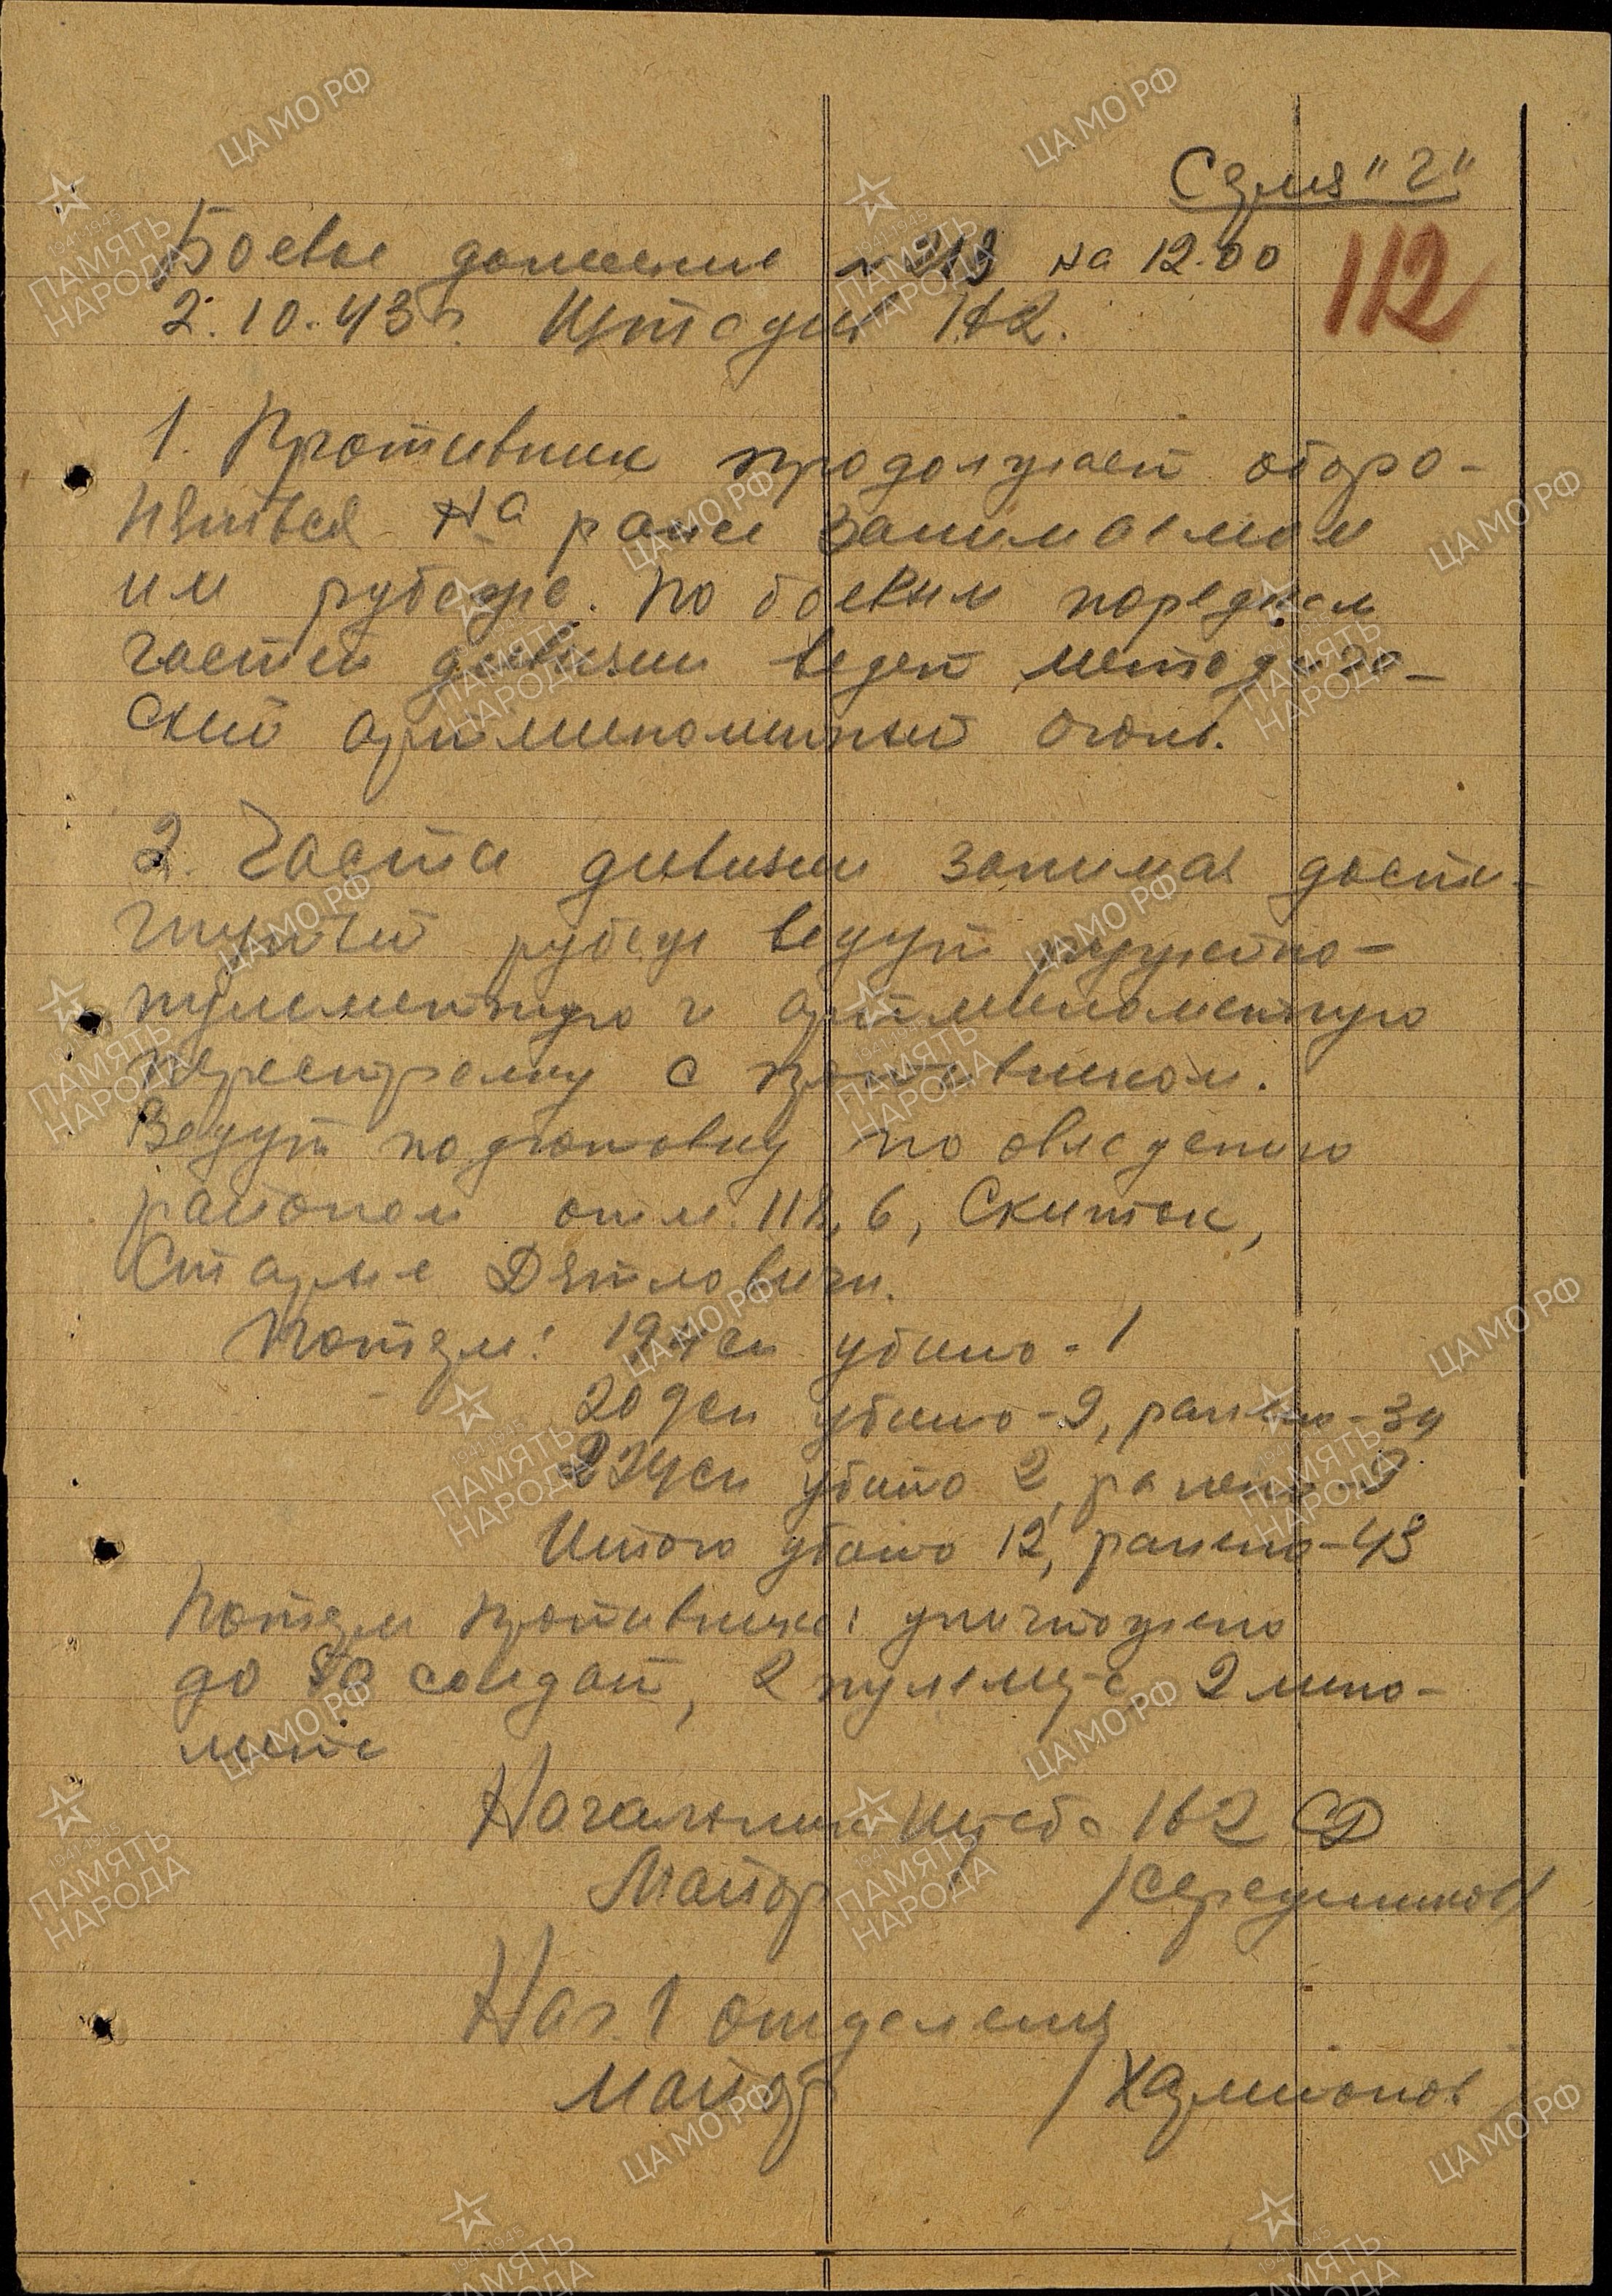 Серия "Г"
Боевое донесение № 213 на 12.00
112
2.10.43 г. Штадив 162.
1. Противник продолжает оборо-
няться на ранее занимаемом
им рубеже. По боевым порядкам
частей дивизии ведет методиче-
ский артминометный огонь.
2. Части дивизии занимая дости-
гнутый рубеж ведут ружейно-
пулеметную и артминометную
перестрелку с противником.
Ведут подготовку по овладению
районом отм. 118,6, Скиток,
Старые Дятловичи.
Потери: 194 сп убито - 1
209 сп убито - 9, ранено - 34
224 сп убито 2, ранено - 9
Итого убито 12, ранено - 43
Потери противника: уничтожено
до 50 солдат, 2 пулемета, 2 мино-
мета
Начальник штаба 162 СД
Майор /Середников/
Нач. 1 отделения
Майор /Хармионов
ЦА МО РФ
1941-1945
ПАМЯТЬ
НАРОДА